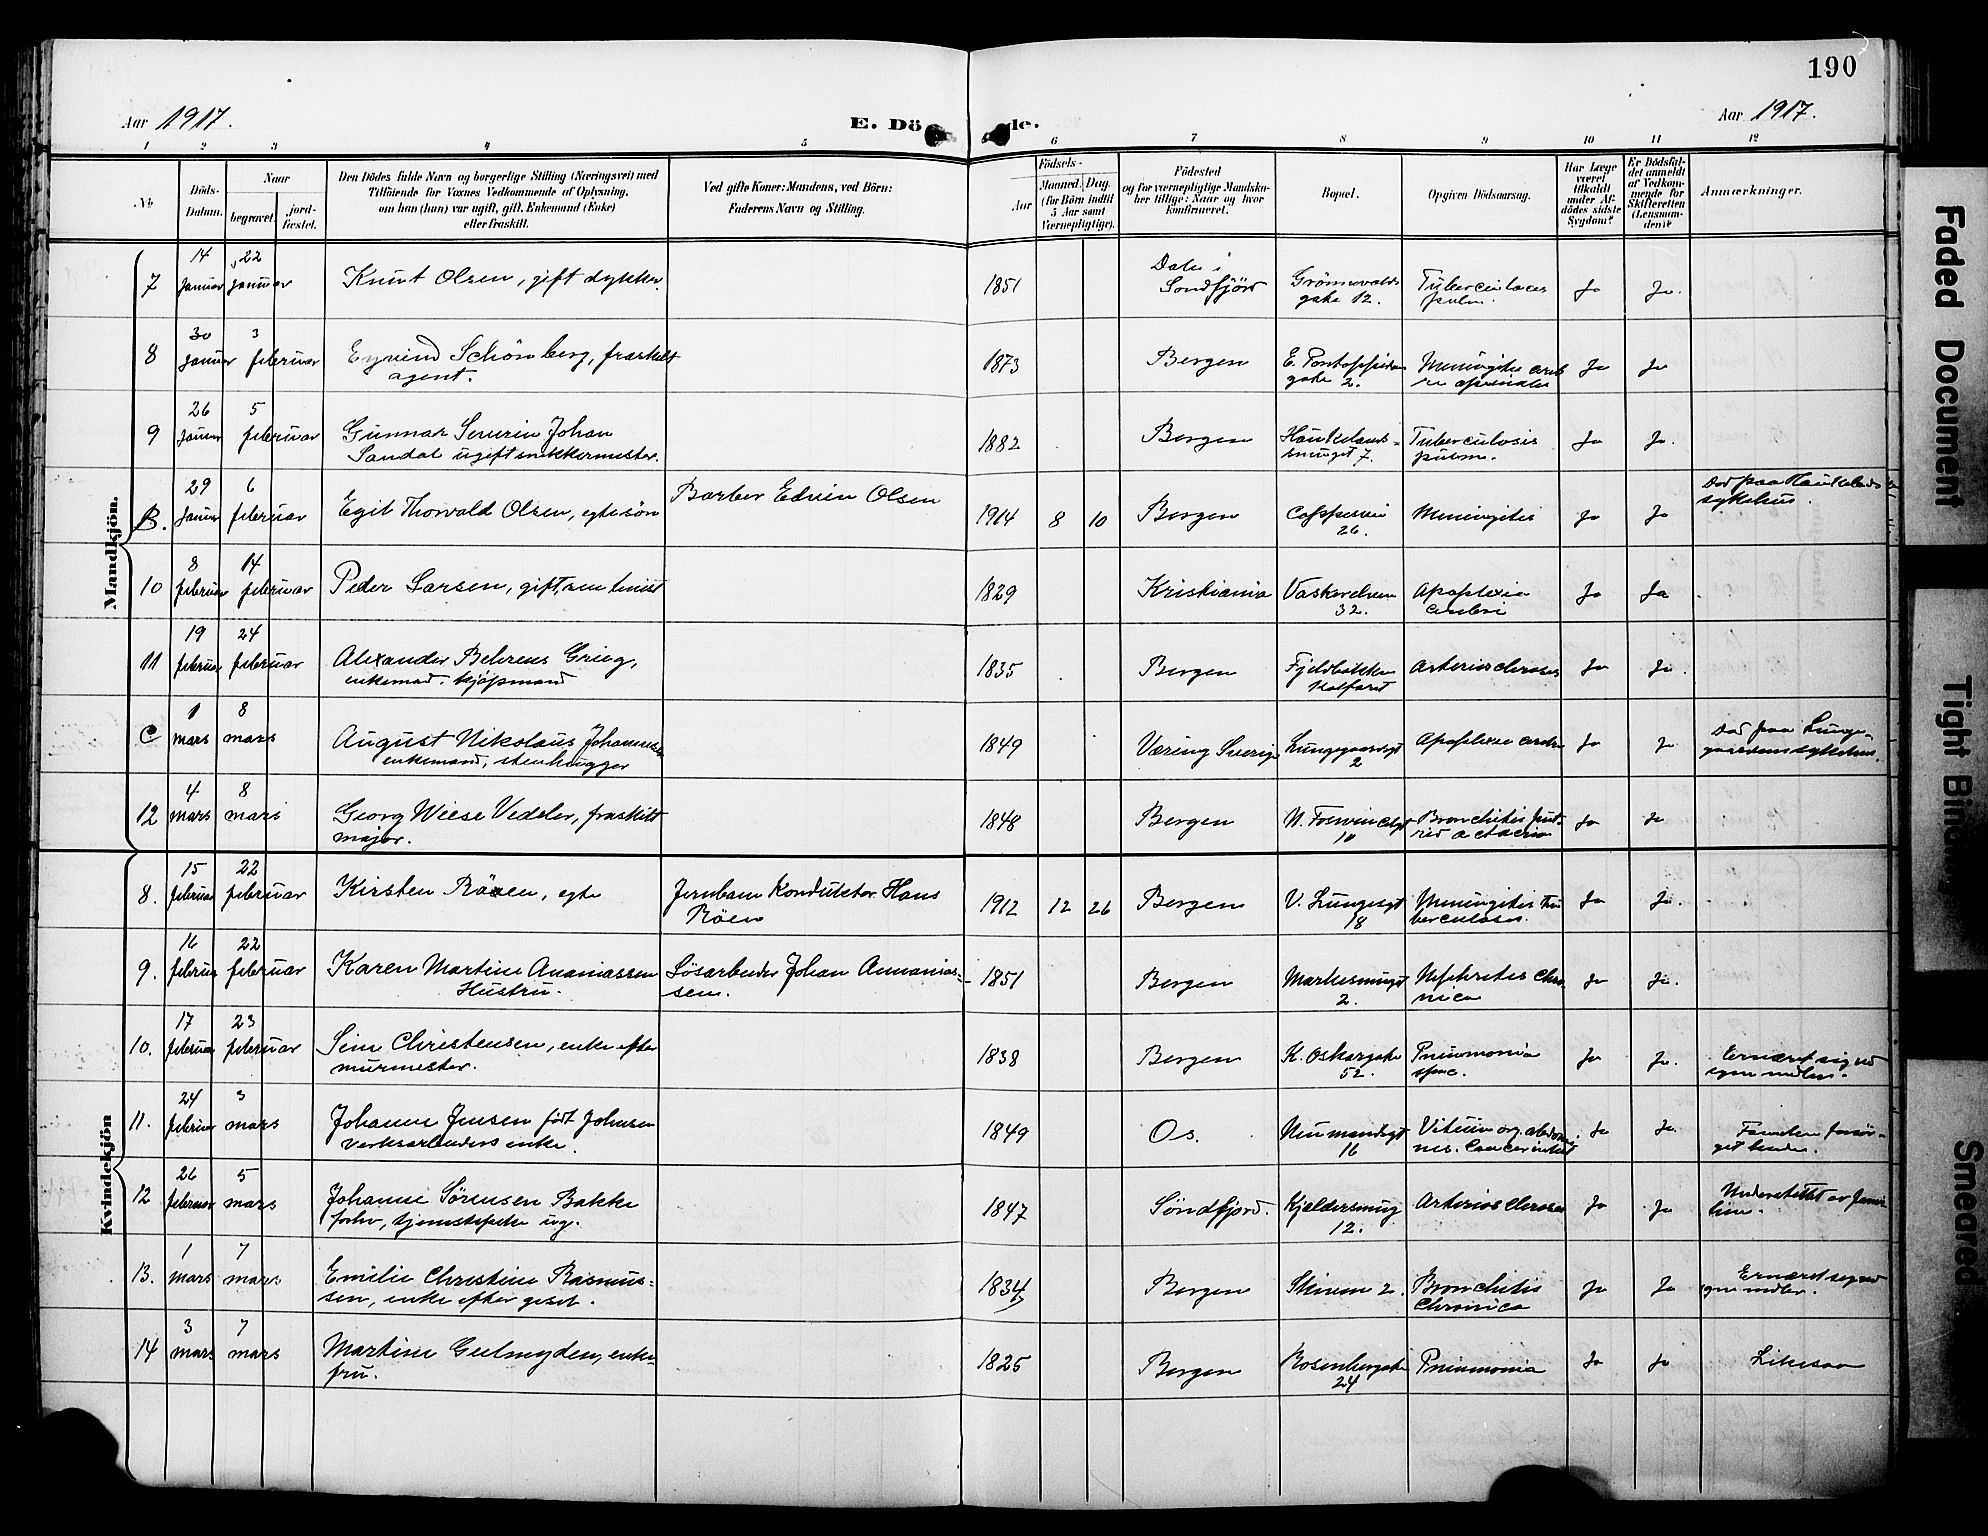 190
Aar 1917.
E. Dö de.
Aar 1917.
1 2 3 4 5 6 7 8 9 10 11 12
No
Döds-
Datum.
Naar
begravet.
jord-
fæstet.
Den Dödes fulde Navn og borgerlige Stilling (Næringsvei) med
Tilföiende for Voxnes Vedkommende af Oplysning,
om han (hun) var ugift, gift, Enkemand (Enke)
eller fraskilt.
Ved gifte Koner: Mandens, ved Börn:
Faderens Navn og Stilling.
Födsels-
Aar
Maaned. Dag.
(for Börn indtil
5 Aar samt
Værnepligtige).
Födested
og for værnepligtige Mandska-
ber tillige: Naar og hvor
konfirmeret.
Bopæl.
Opgiven Dödsaarsag.
Har Læge
været
tilkaldt
under Af-
dödes sidste
Sygdom?
Er Dödsfal-
det anmeldt
af Vedkom-
mende for
Skifteretten
(Lensman-
den)?
Anmærkninger.
Mandkjön.
7 14 januar 22 januar Knut Olsen, gift dykker. 1851 Dale i
Sondfjörd Grönnevolds
gate 12. Tuberculoses
pulm. Ja Ja.
8 30 januar 3 februar Eyvind Schönberg, fraskilt
agent. 1873 Bergen E. Pontoppidans
gate 2. Meningitis cereb
Ja Ja
9 26 januar 5 februar Gunnar Severin Johan
Sandal ugift snekkermester. 1882 Bergen Haukelands-
smuget 7. Tuberculosis
pulm. Ja Ja.
B. 29 januar 6 februar Egil Thorvald Olsen, egte sön Barber Edvin Olsen 1914 8 10 Bergen Cappesvei
26. Meningitis Ja Ja Död paa Haukelands
sykehus.
10 8 februar 14 februar Peder Larsen, gift, 1829 Kristiania Vaskerelven
32. Apoplexia
cerebri Ja Ja
11 19 februar 24 februar Alexander Behrens Grieg,
enkemand. kjöpmand 1835 Bergen Fjeldbakken
Kalfaret Arteriosclerosis Ja Ja.
C 1 mars 8 mars August Nikolaus Johannesen
enkemand, stenhugger 1849 Væring Sverige Lungegaardsgt
2 Apoplexia cerebri Ja Ja Död paa Lunge-
gaardens sykehus.
12 4 mars 8 mars Georg Wiese Vedeler, fraskilt
major. 1848 Bergen N. Fosswinckelsgt
10 Bronchitis
Ja Ja
Kvindekjön
8. 15 februar 22 februar Kirsten Röen, egte Jernbane Konduktör Hans
Röen 1912 12 26 Bergen V. Lungesgt
18 Meningitis tu
berculosis. Ja Ja.
9. 16 februar 22 februar Karen Martine Ananiassen
Hustru. Løsarbeider Johan Annanias-
sen. 1851 Bergen Markesmuget
2. Nephritis chro
nica Ja Ja.
10. 17 februar 23 februar Sine Christensen, enke efter
murmester. 1838 Bergen K. Oskarsgate
52. Pneumonia
Ja Ja. Ernæret sig ved
egne midler.
11. 24 februar 3 mars Johanne Jensen född Johnsen
verksarbeiders enke. 1849 Os. Neumandsgt
16 Vitium org.
Ja Ja. Familien forsör-
get hende.
12 26 februar 5 mars Johanne Sørensen Bakke
forhv. tjenestepike ug. 1847 Søndfjord. Kjeldersmug
12. Arteriosclerosis Ja Ja Understøttet av fami
lien.
13. 1 mars 7 mars Emilie Christine Rasmus-
sen, enke efter gesel. 1834 Bergen Skiven 2. Bronchitis
chronica Ja Ja Ernæret sig ved
egne midler.
14 3 mars 7 mars Martine Geelmuyden, enke-
fru. 1825 Bergen Rosenbergsgate
24 Pneumonia Ja Ja Likesaa
Faded Document
Tight Binding
Smeared